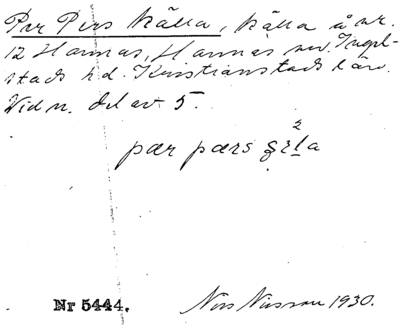 Per Pers Källa, källa å nr.
12 Hannas, Hannas sn. Ingel-
stads hd. Kristianstads län.
Vid n. del av 5.
2
pær pærs
Nr 5444. Nils Nilsson 1930.